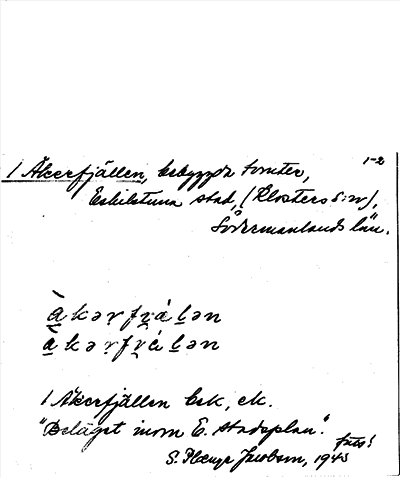 1-2
1 Åkerfjällen, bebyggda tomter,
Eskilstuna stad, (Klosters s:n),
Södermanlands län.
à̱kər̥fy̯áḻən
à̱kər̥fy̯áḻən
1 Åkerfjällen bek, ek.
"Beläget inom E. stadsplan".
S. Jacobson, 1943